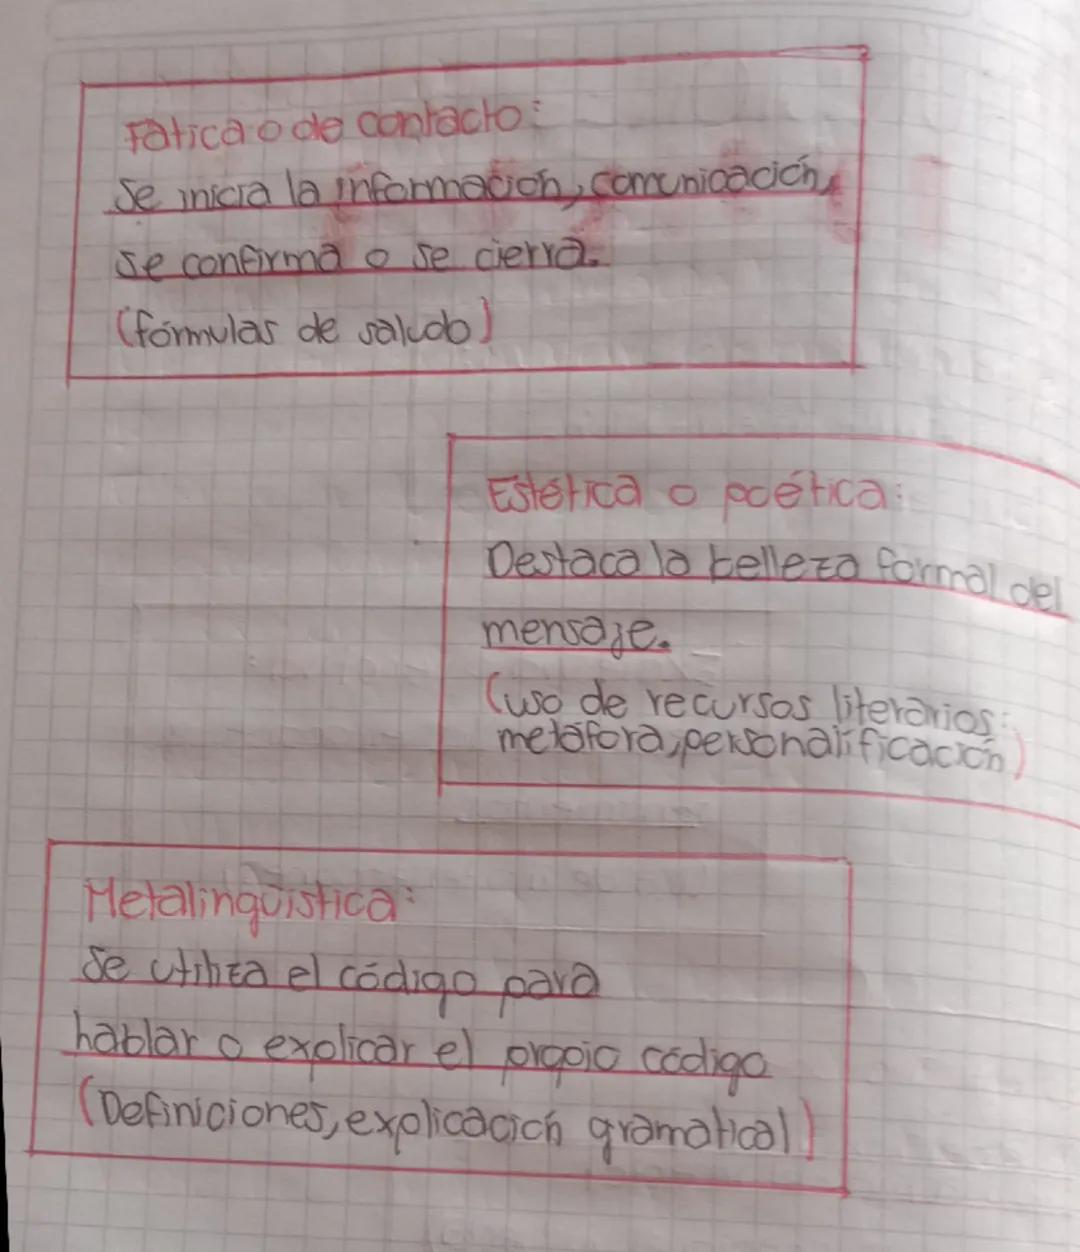 Fática o de contacto:
Se inicia la información, comunicación,
se confirma o se cierra.
(fórmulas de saludo)
Estética o poética:
Destaca la belleza formal del
mensaje.
(uso de recursos literarios:
metáfora, personalificación)
Metalingüistica:
Se utiliza el código para
hablar o explicar el propio código
(Definiciones, explicación gramatical)